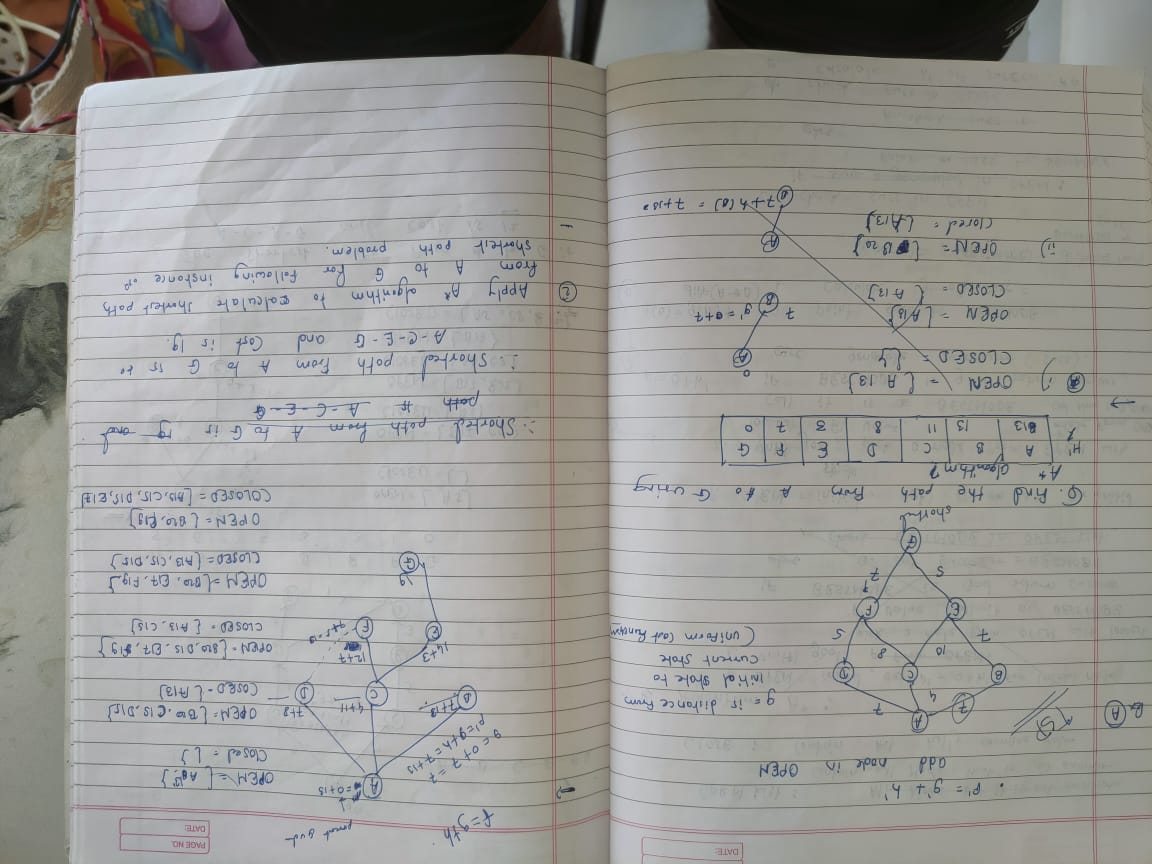 DATE:
. F' = g' + h'
add node in OPEN
Q. A
A
7
4
7
B
C
D
10
8
7
5
E
F
5
7
G
g = is distance from
initial state to
current state
(uniform cost function
shorted
Q. Find the path from A to G using
A* algorithm?
H' A B C D E F G
13 13 11 8 3 7 0
→
i) OPEN = { A 13}
CLOSED = { }
OPEN = {A13}
CLOSED = { A 13}
ii) OPEN = { B 20}
closed = {A13}
0
A
7
B g' = 0+7
A
B 7+h(B) =
PAGE NO.
DATE:
f = g+h
g = 0+7 = 7
f' = g+h = 7+13
A = 0+13
B 7+13
C 4+11
D 7+8
E 14+3
F 12+7
G 19
OPEN = { A13}
Closed = { }
OPEN = {B20, C15, D15}
COSED = { A13}
OPEN = {B20, D15, E17, F19}
CLOSED = { A13, C15}
OPEN = {B20, E17, F19}
CLOSED = {A13, C15, D15}
OPEN = { B20, F19}
COLOSED = {A13, C15, D15, E17}
∴ Shorted path from A to G is 19 and
path # A-C-E-G
∴ shorted path From A to G is
A-C-E-G and Cost is 19.
2 Apply A* algorithm to calculate shortest path
from A to G for following instance of
shortest path problem.